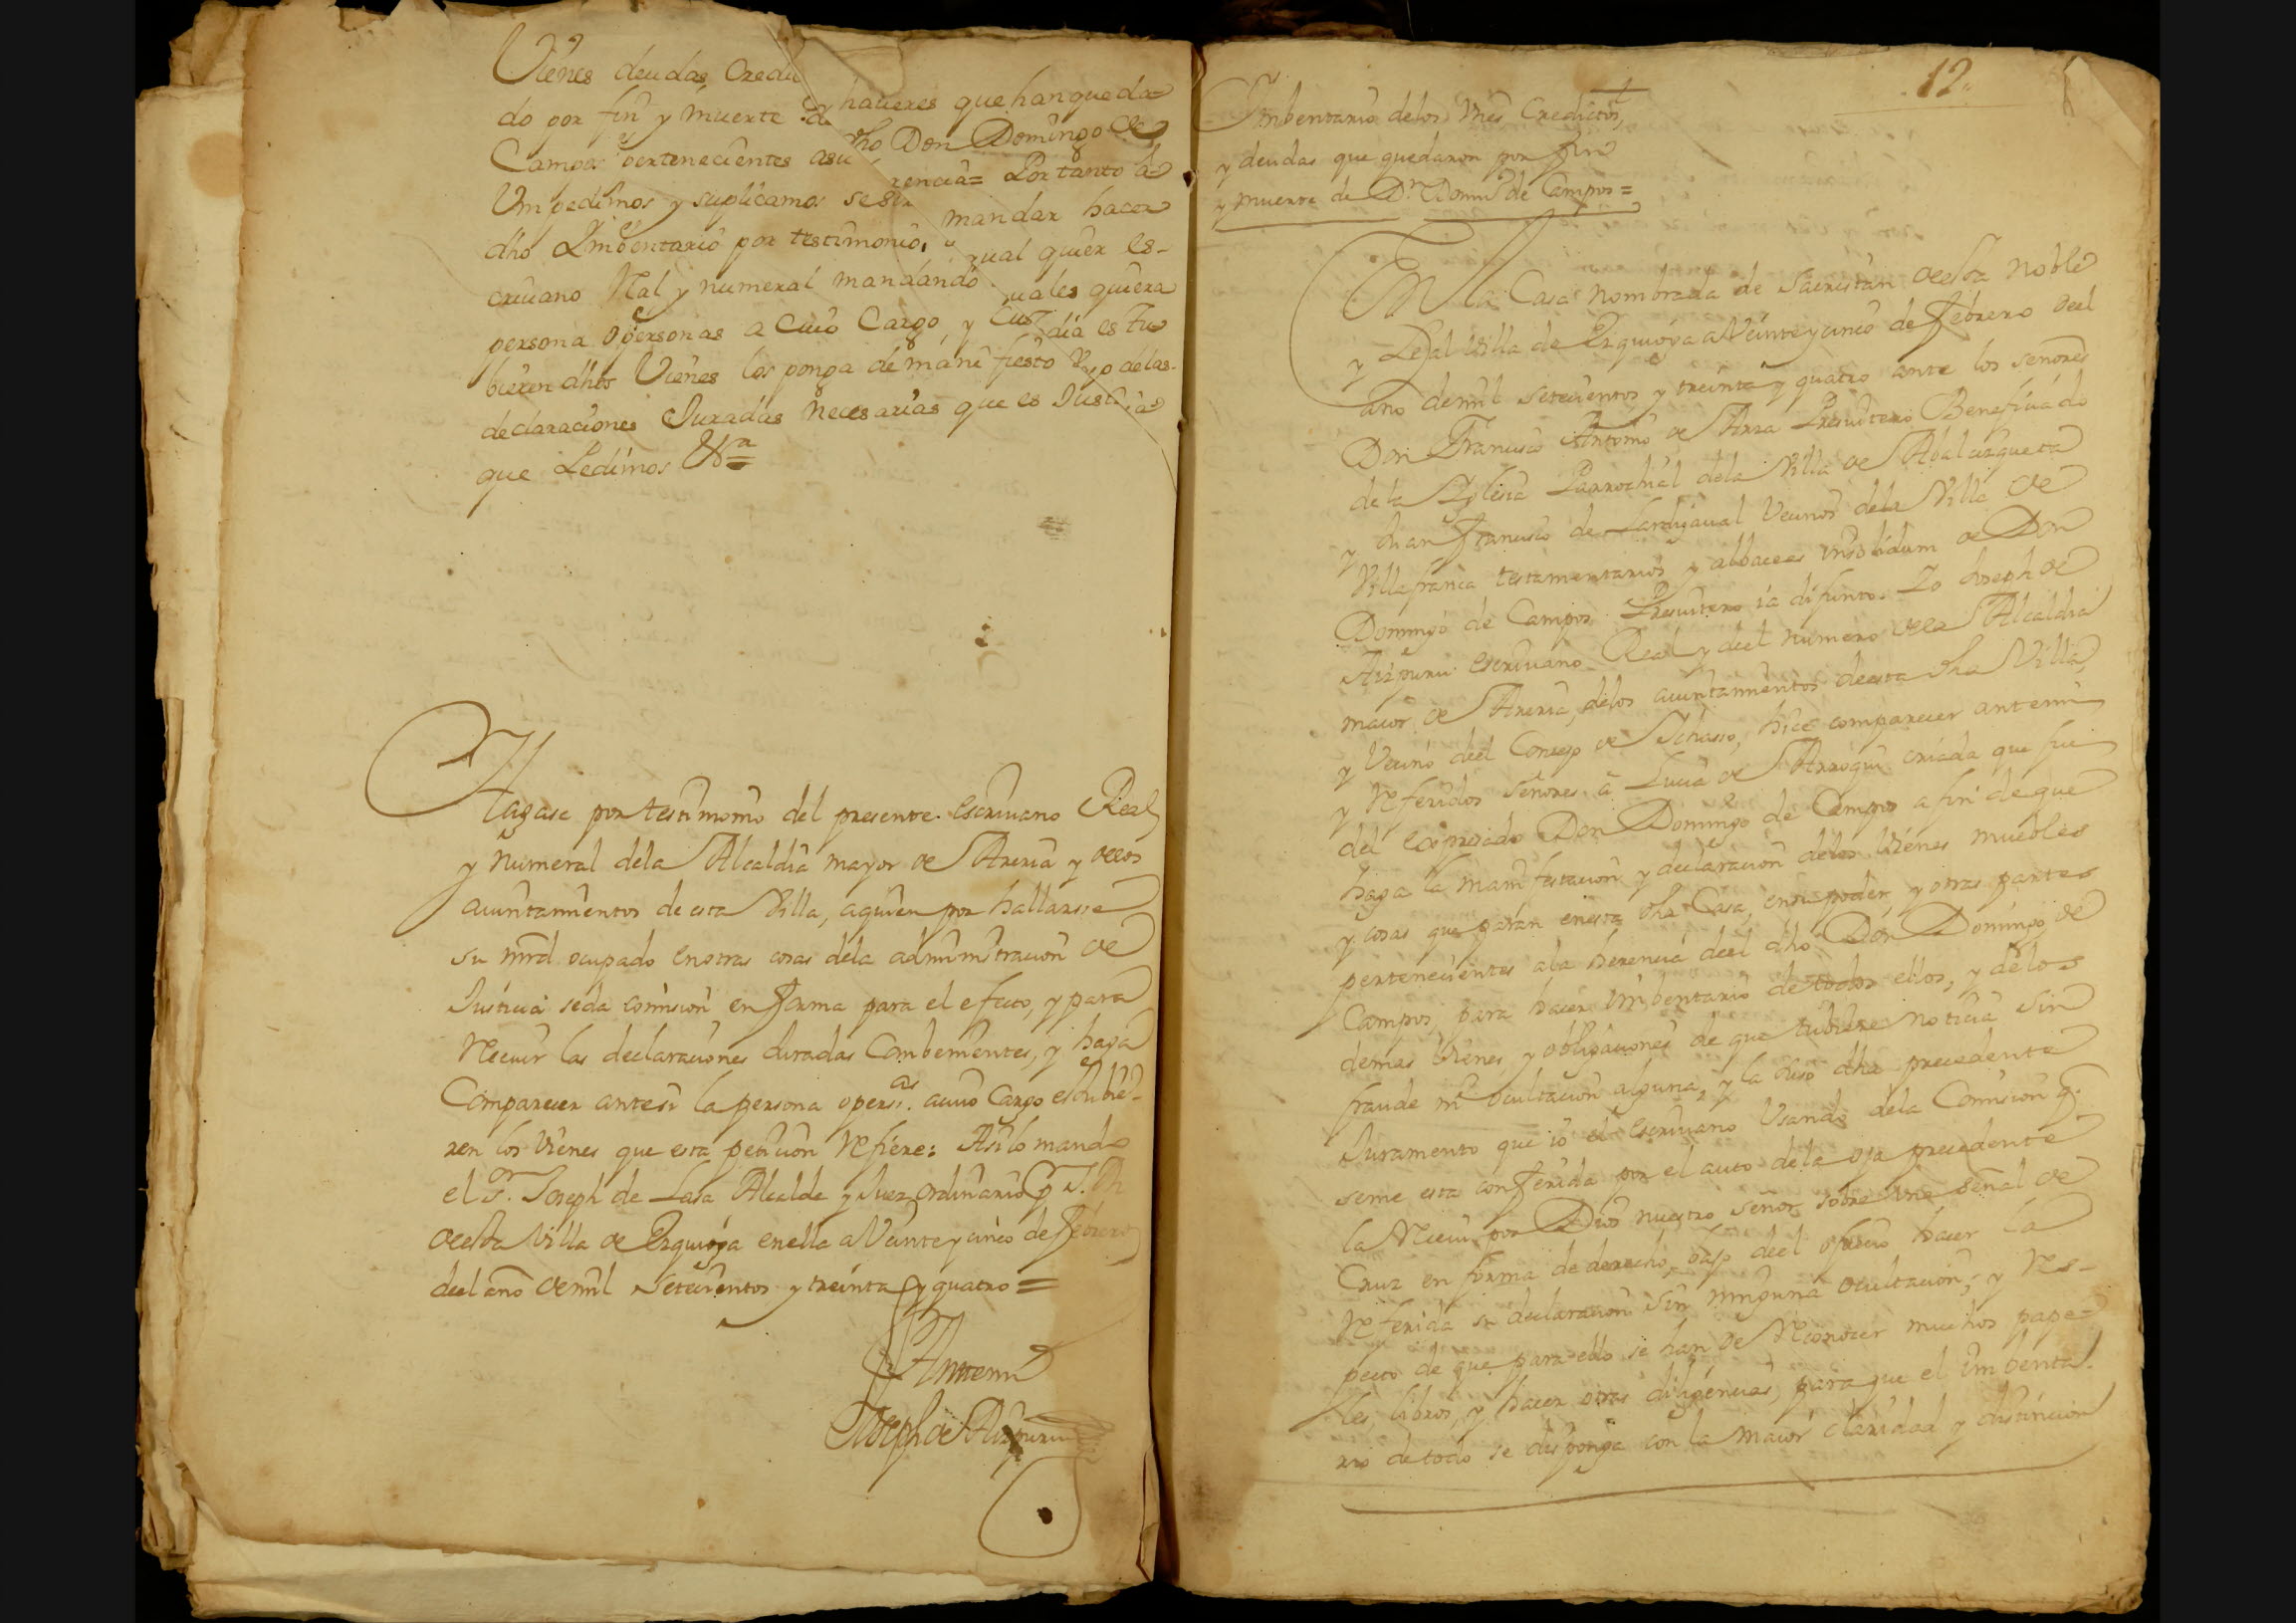 Vienes deudas, Credi
y haueres que han queda=
do por fin y muerte de
dho Don Domingo de
Campos pertenecientes asu
rencia= Por tanto a
Vm pedimos y suplicamos se sir
mandar hacer
dho Imbentario por testimonio,
qual quier es-
criuano Ral y numeral mandando
quales quiera
persona o personas a Cuio Cargo, y Cus
dia estu
bieren dhos Vienes los ponga de manifiesto vajo de las
declaraciones Juradas necesarias que es Justicia
que Pedimos &ª=
Hagase por testimonio del presente escriuano Real
y numeral dela Alcaldia mayor de Areria y de los
aiuntamientos de esta Villa, aquien por hallarse
su mrd ocupado en otras cosas dela administracion de
Justicia se da comision en forma para el efecto, y para
Reciuir las declaraciones Juradas Combenientes, y haga
Comparecer antesi la persona o persas. acuio Cargo estubie-
ren los Vienes que esta peticion Refiere: Asi lo mando
el Sr. Joseph de Lasa Alcalde y Juez ordinario
de esta Villa de Ezquioga en ella a Veinte y cinco de Febrero
del año de mil setecientos y treinta y quatro=
Antemi
Joseph de Aizpuru
12
Imbentario delos Vnes Creditos,
y deudas que quedaron por fin
y muerte de Dn. Domº de Campos=
En la Casa nombrada de Sacristan de esta Noble
y Leal Villa de Ezquioga a Veinte y cinco de Febrero del
año de mil setecientos y treinta y quatro ante los señores
Don Francisco Antonio de Arza Presuitero Beneficiado
de la Iglesia Parrochial dela Villa de Albalzisqueta
y Juan Francisco de Lardizaual Vecinos dela Villa de
Villafranca testamentarios y albaceas insolidum de Don
Domingo de Campos Presuitero ia difunto. Yo Joseph de
Aizpuru escriuano Real y del numero dela Alcaldia
maior de Areria, delos aiuntamientos de esta dha Villa,
y Vecino del Consejo de Ichaso, hice comparecer antemi
y Referidos señores a Lucia de Arregui criada que fue
del expresado Don Domingo de Campos a fin de que
haga la manifestacion y declaracion delos Vienes muebles
y cosas que paran en esta dha Casa, en su poder, y otras partes
pertenecientes ala herencia del dho Don Domingo de
Campos, para hacer Imbentario de todos ellos, y delos
demas Vienes, y obligaciones de que tubiere noticia sin
fraude ni ocultacion alguna, y la suso dha precedente
Juramento que io el escriuano Vsando dela Comision q.
seme esta conferida por el auto dela oja precedente
la Reciui por Dios nuestro señor, sobre vna señal de
Cruz en forma de derecho, bajo del ofrecio hacer la
Referida su declaracion sin ninguna ocultacion; y Res-
pecto de que para ello se han de Reconocer muchos pape=
les, libros, y hacer otras diligencias, para que el Imbenta-
rio de todo se disponga con la maior claridad y distincion